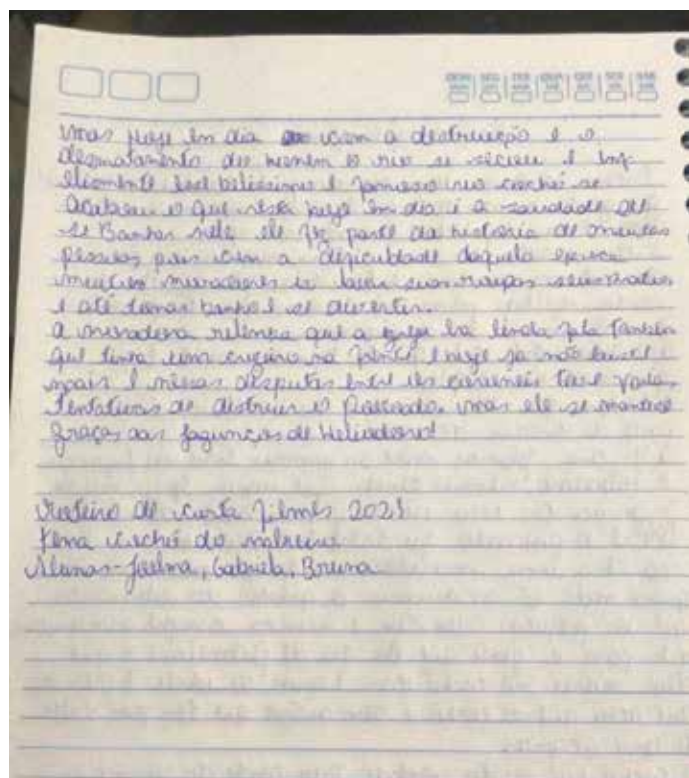 mas hoje em dia com a destruição e o
desmatamento do homem o rio se secou e inf
elismente esse belissimo e famoso rio coché se
acabou o que resta hoje em dia é a saudade de
se Banhar nele ele fez parte da historia de muitas
pessoas pois com a dificuldade daquela epoca
muitos moradores ia lavar suas roupas seus pratos
e até tomar banho e se divertir.
a moradora relembra que a igreja era linda fala também
que tinha um cruzeiro na frente e hoje ja não existe
mais e nessas disputas entre os coroneis teve varias
tentativas de destruir o povoado. mas ele se manteve
graças aos jagunços de Heliodoro!
Roteiro de curta filmes 2021
tema coché do malheiro
Alunas - Joelma, Gabriela, Bruna